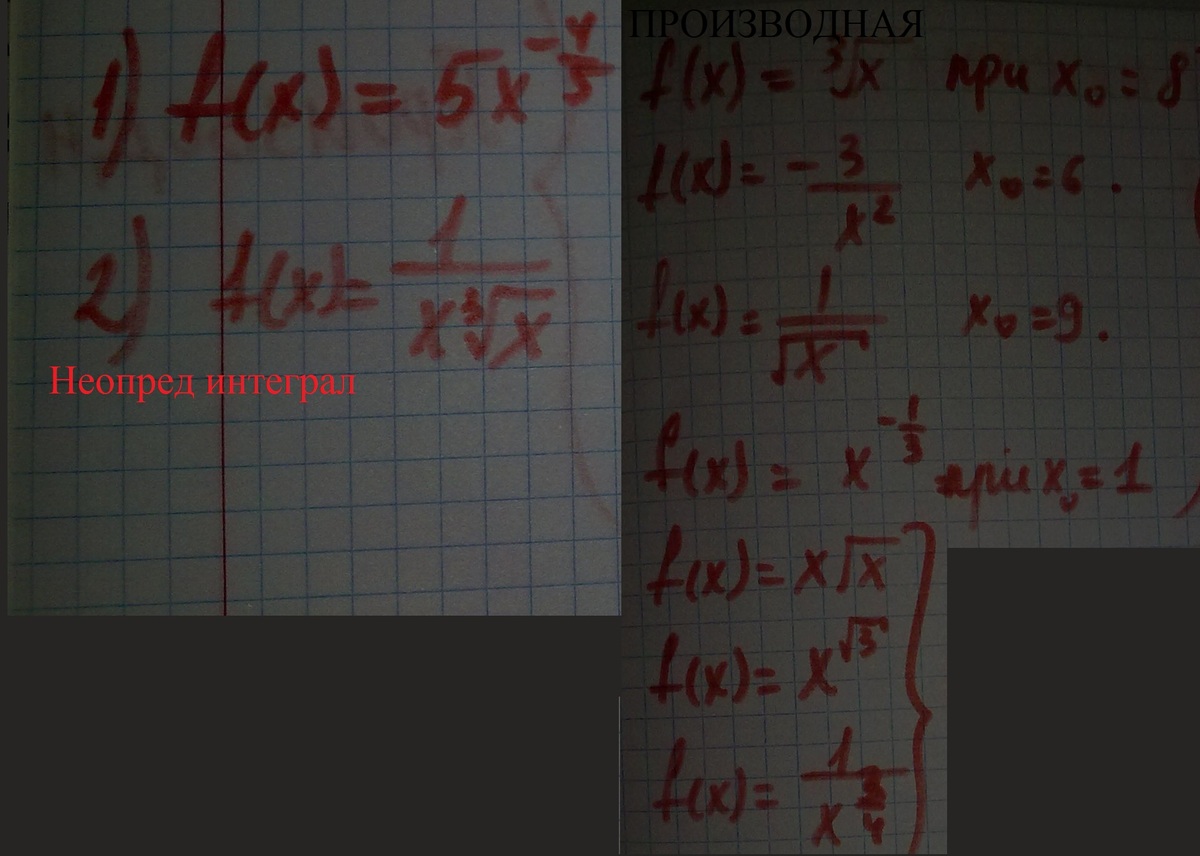 1) f(x) = 5x^{-4/5}
2) f(x) = 1/(x∛x)
Неопред интеграл
ПРОИЗВОДНАЯ
f(x) = ∛x при x₀ = 8
f(x) = -3/x² x₀ = 6 .
f(x) = 1/√x x₀ = 9 .
f(x) = x^{-1/3} при x₀ = 1
f(x) = x√x
f(x) = x^{√3}
f(x) = 1/x^{3/4}